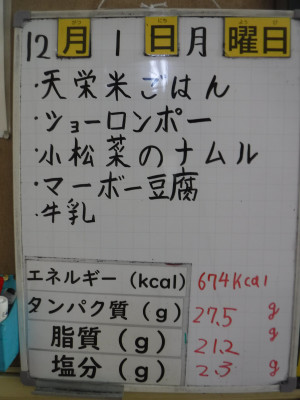 12月1日月曜日
・天栄米ごはん
・ショーロンポー
・小松菜のナムル
・マーボー豆腐
・牛乳
エネルギー(kcal) 674Kcal
タンパク質(g) 27.5 g
脂質(g) 21.2 g
塩分(g) 2.3 g